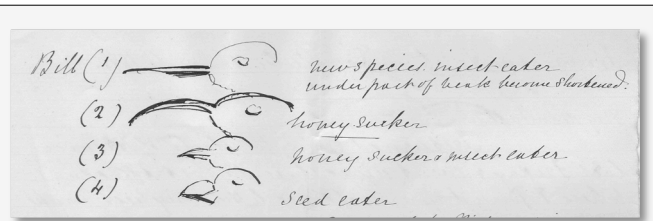 Bill (1) new species insect-eater
under part of beak become shortened.
(2) honey sucker
(3) honey sucker & insect eater
(4) seed eater